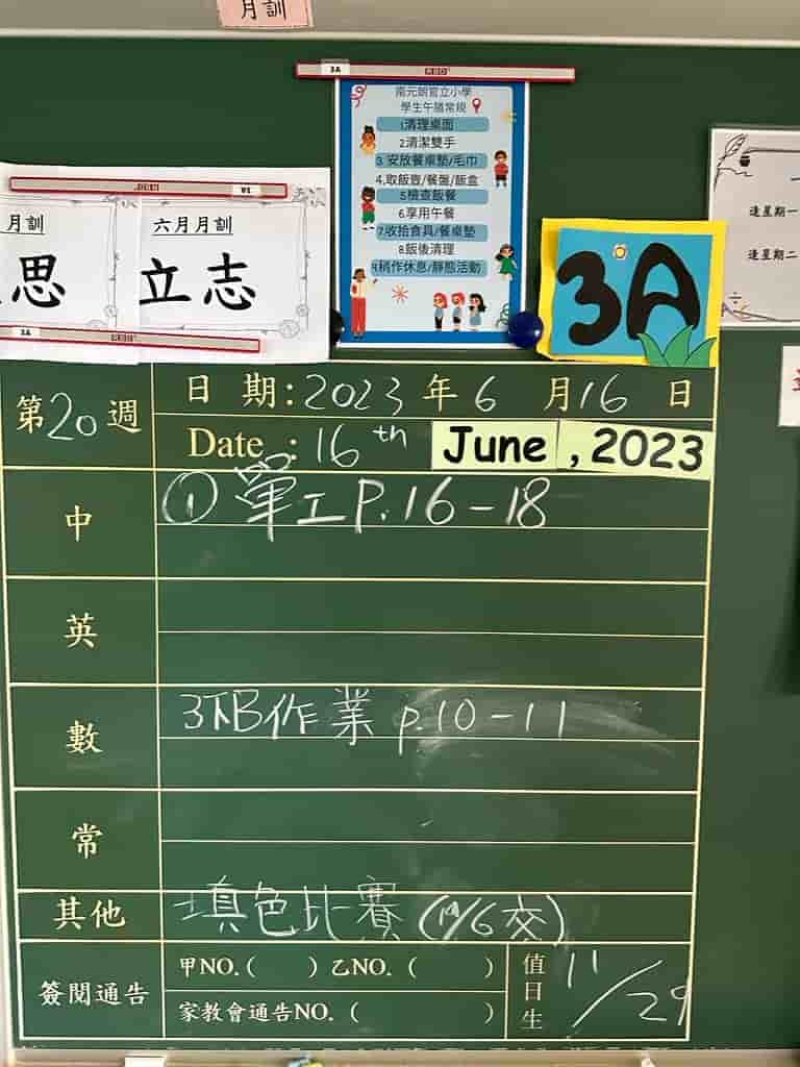 月訓
3A
南元朗官立小學
學生午膳常規
1清理桌面
2清潔雙手
3.安放餐桌墊/毛巾
4.取飯壺/餐盤/飯盒
5檢查飯餐
6.享用午餐
7.收拾食具/餐桌墊
8.飯後清理
9.稍作休息/靜態活動
月訓
思
六月月訓
立志
3A
3A
逢星期一
逢星期二
第20週
日 期:2023年6月16日
Date : 16th June , 2023
中
① 單工P.16-18
英
數
3下B作業 p.10-11
常
其他
填色比賽(19/6交)
簽閱通告
甲NO.( ) 乙NO. ( )
家教會通告NO. ( )
值日生
11/29